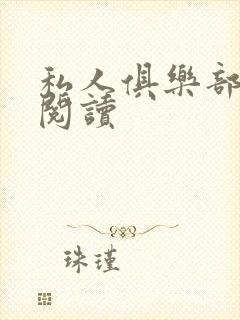 私人俱樂部
閱讀
珠瑾